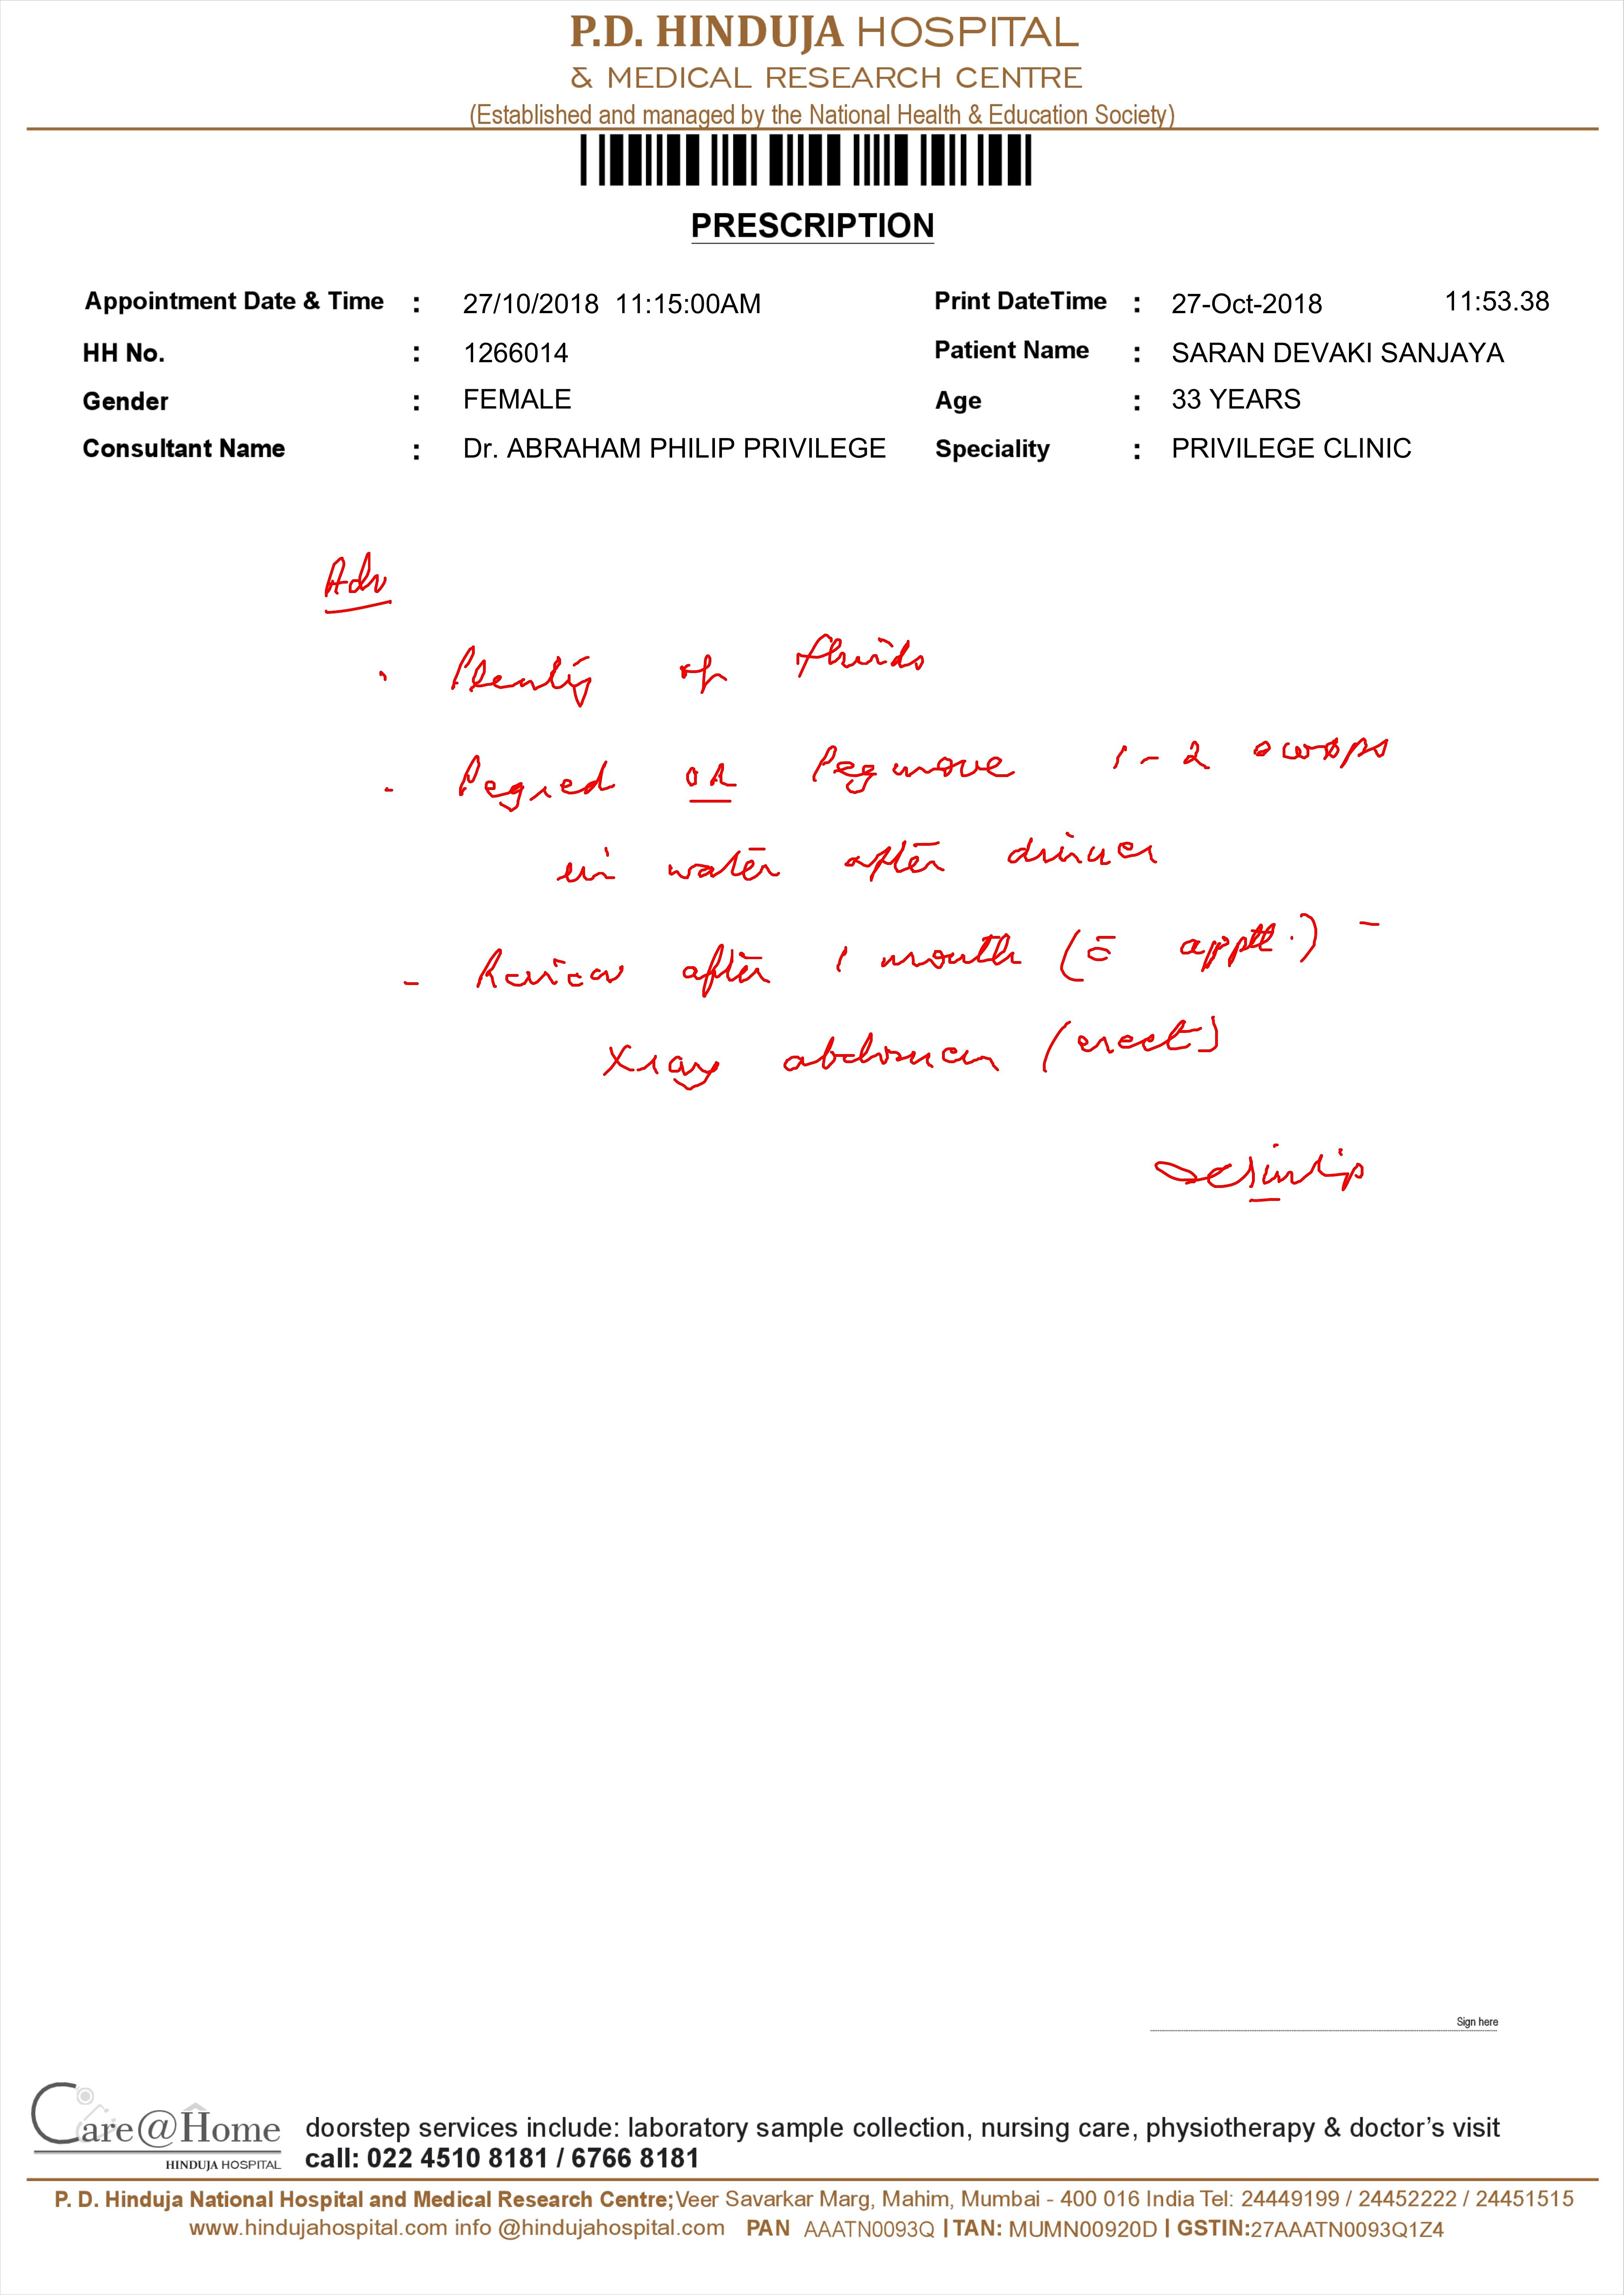 P.D. HINDUJA HOSPITAL
& MEDICAL RESEARCH CENTRE
(Established and managed by the National Health & Education Society)
PRESCRIPTION
Appointment Date & Time : 27/10/2018 11:15:00AM Print DateTime : 27-Oct-2018 11:53.38
HH No. : 1266014 Patient Name : SARAN DEVAKI SANJAYA
Gender : FEMALE Age : 33 YEARS
Consultant Name : Dr. ABRAHAM PHILIP PRIVILEGE Speciality : PRIVILEGE CLINIC
Adv
· Plenty of fluids
- Pegred OR Pegmove 1-2
in water after dinner
- Review after 1 month (c̄ appt.) -
Xray abdomen (erect)
Sign here
Care@Home
HINDUJA HOSPITAL
doorstep services include: laboratory sample collection, nursing care, physiotherapy & doctor's visit
call: 022 4510 8181 / 6766 8181
P. D. Hinduja National Hospital and Medical Research Centre;Veer Savarkar Marg, Mahim, Mumbai - 400 016 India Tel: 24449199 / 24452222 / 24451515
www.hindujahospital.com info @hindujahospital.com PAN AAATN0093Q | TAN: MUMN00920D | GSTIN:27AAATN0093Q1Z4